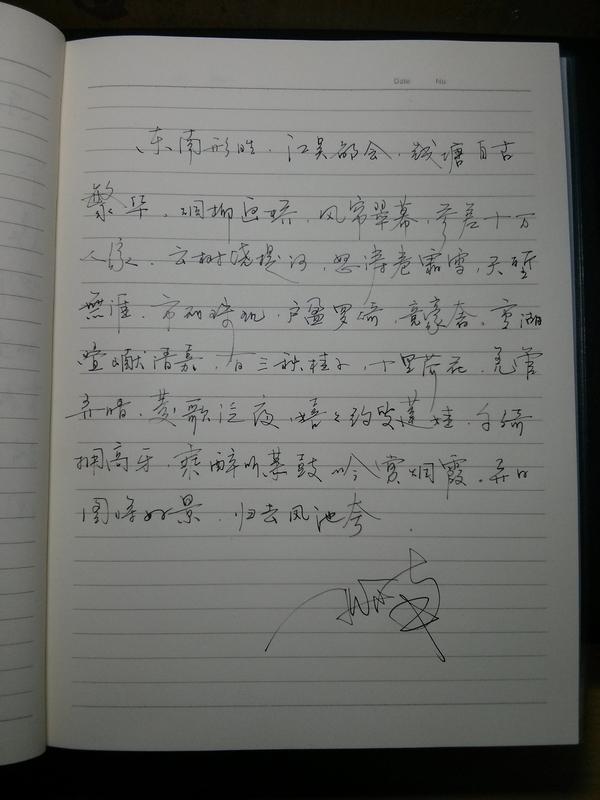 Date No
东南形胜．江吴都会．钱塘自古
繁华．烟柳画桥．风帘翠幕．参差十万
人家．云树绕堤沙．怒涛卷霜雪．天堑
无涯．市列珠玑．户盈罗绮．竞豪奢．重湖
叠巘清嘉．有三秋桂子．十里荷花．羌管
弄晴．菱歌泛夜．嬉々钓叟莲娃．千骑
拥高牙．乘醉听箫鼓．吟赏烟霞．异日
图将好景．归去凤池夸．